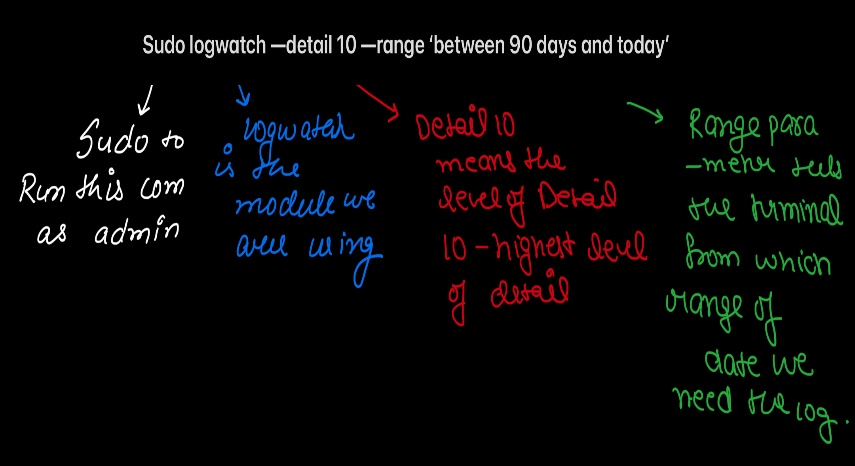 Sudo logwatch —detail 10 —range ‘between 90 days and today’
Sudo to
Run this com
as admin
logwatch
is the
module we
are using
Detail 10
means the
level of Detail
10 - highest level
of detail
Range para
-meter tells
the terminal
from which
range of
date we
need the log.